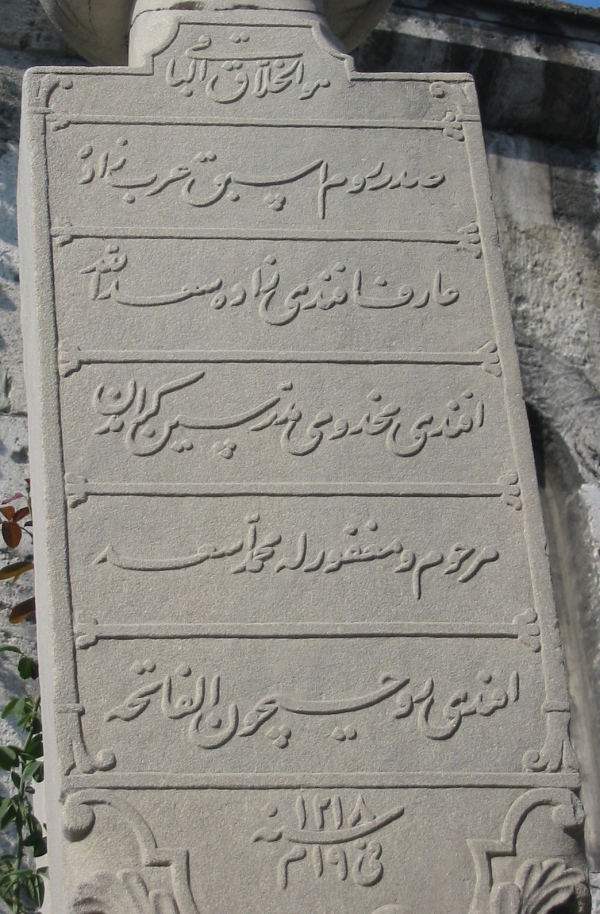 هو الخلاق الباقی
صدر روم اسبق عرب زاده
عارف افندی زاده سعد الله
افندی مخدومی مدرسین کرامدن
مرحوم و مغفور له محمد اسعد
افندی روحیچون الفاتحه
سنه ١٢١٨
فی ١٩ م